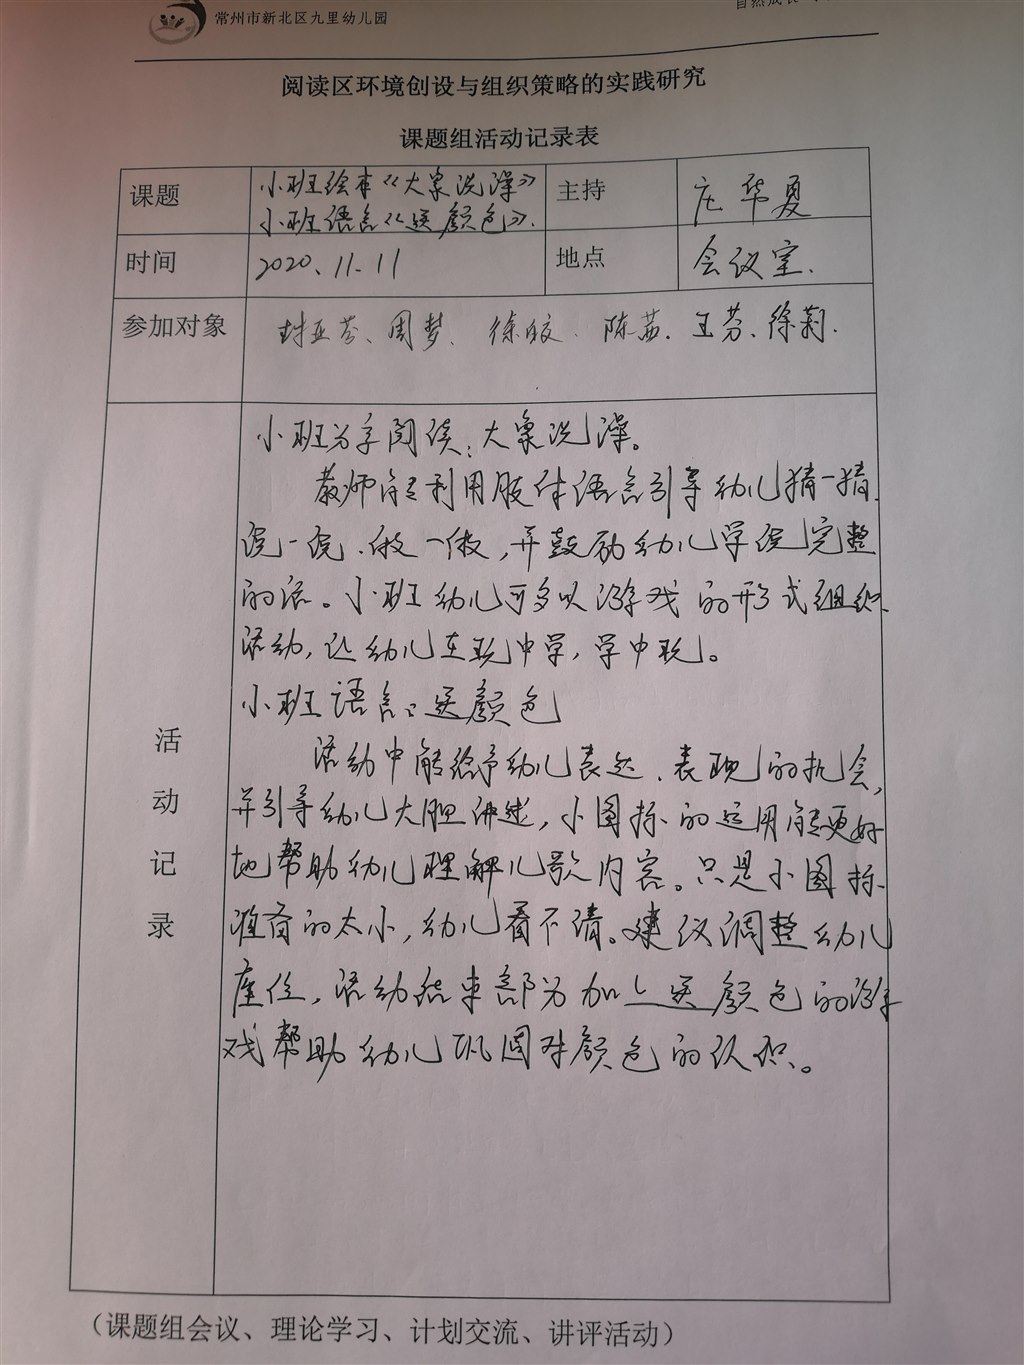 常州市新北区九里幼儿园
自然成长
阅读区环境创设与组织策略的实践研究
课题组活动记录表
课题
小班绘本《大象洗澡》
小班语言《送颜色》.
主持
庄华夏
时间
2020、11.11
地点
会议室.
参加对象
封亚芬、周梦、徐皎、陈茜、王芬、徐莉.
小班分享阅读:大象洗澡。
教师能利用肢体语言引导幼儿猜一猜、
说一说、做一做,并鼓励幼儿学说完整
的话。小班幼儿可多以游戏的形式组织
活动,让幼儿在玩中学,学中玩。
小班语言:送颜色
活动中能给予幼儿表达、表现的机会,
并引导幼儿大胆讲述,小图标的运用能更好
地帮助幼儿理解儿歌内容。只是小图标
准备的太小,幼儿看不清。建议调整幼儿
座位,活动结束部分加上送颜色的游
戏帮助幼儿巩固对颜色的认识。
活
动
记
录
(课题组会议、理论学习、计划交流、讲评活动)